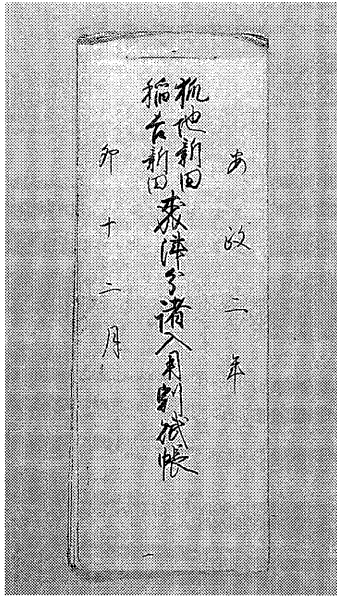 安政二年
狐地新田
稲 新田
分諸入用割賦帳
卯十二月